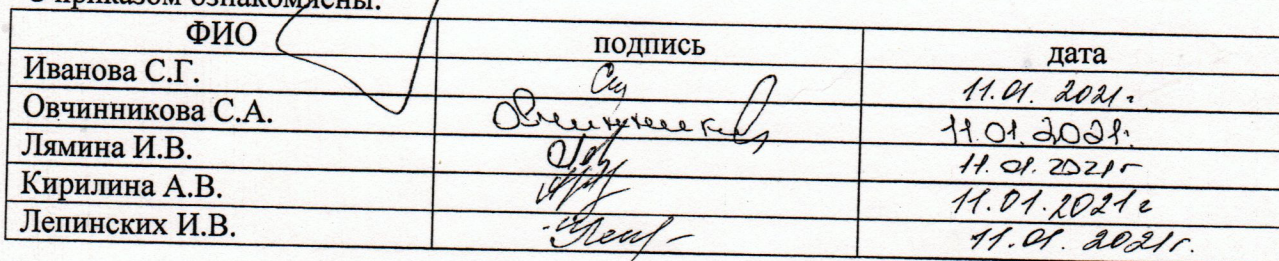 С приказом ознакомлены:
ФИО подпись дата
Иванова С.Г. 11.01.2021г
Овчинникова С.А. 11.01.2021г
Лямина И.В. 11.01.2021г
Кирилина А.В. 11.01.2021г
Лепинских И.В. 11.01.2021г.